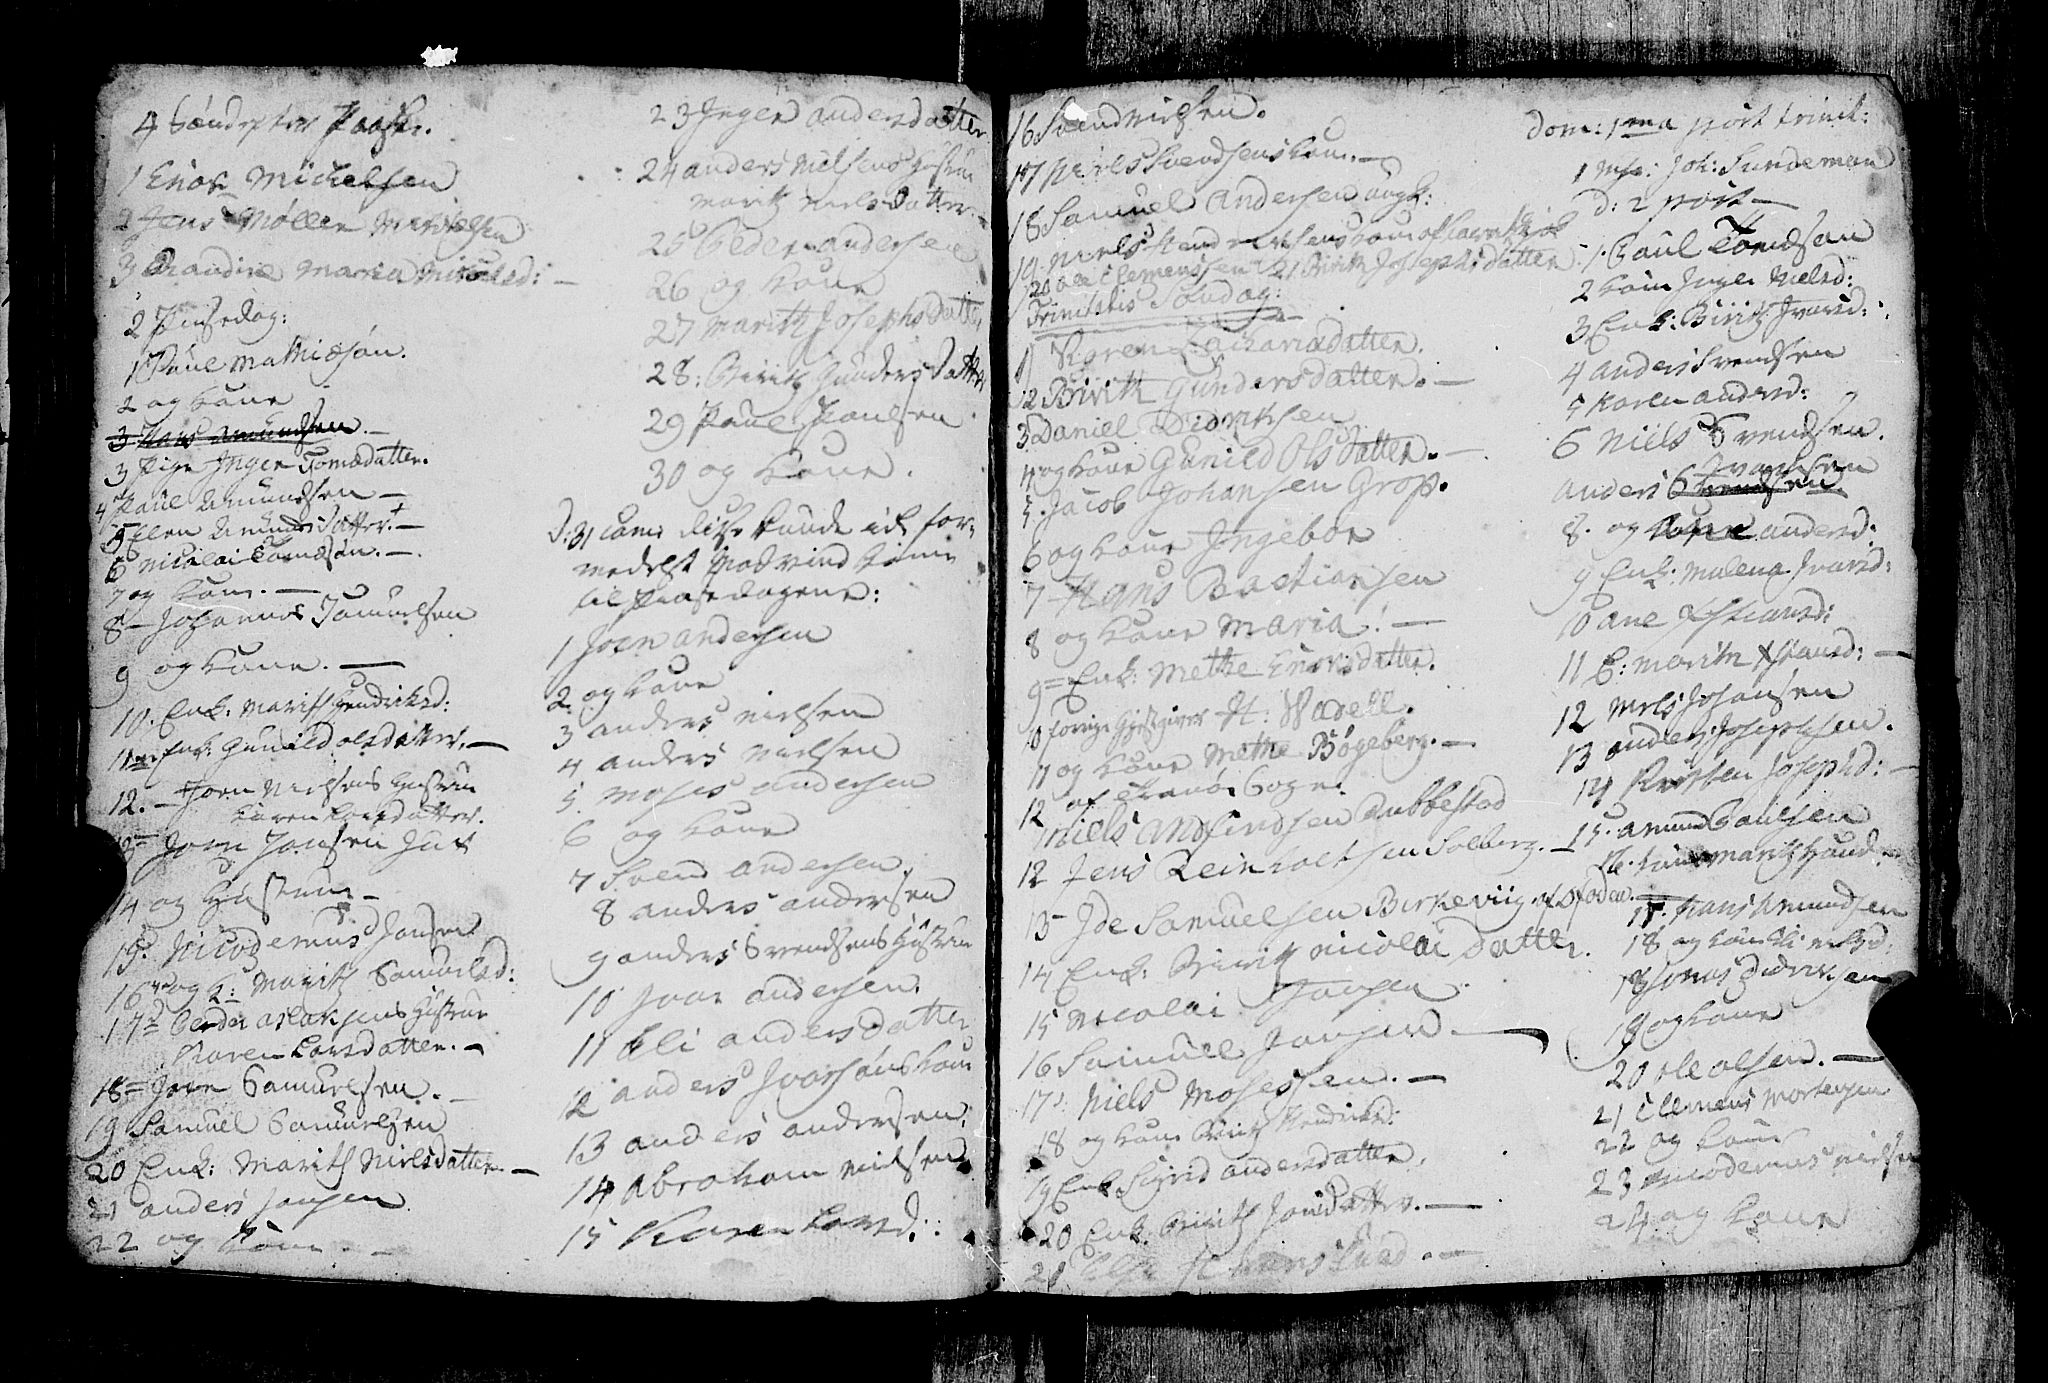 4 Søndag efter Paaske.
1 Enok Mickelsen
2 Jens Møller Mickelsen
3 Maria
2 Pinsedag:
1 Paul Mathisøn.
2 og kone
3 Hans Amundsen.
3 Pige Inger Tomædatter.
4 Paul Amundsen —
5 Elen Amundsdatter. —
6 Nicolai Tomæsøn. —
7 og kone. —
8 Johannes Samuelsen
9 og kone. —
10. Enk: Marith Hendriksd:
11 Enk: Gunild Olsdatter. —
12. — Joen Nielsens Hustrue
Karen Larsdatter.
13 Joen Jonsen Juul
14 og Hustrue —
15. Nicodemus Jonsen
16 og k: Marith Samuelsd:
17 Peder Aslaksens Hustrue
Karen Larsdatter. —
18 = Joen Samuelsen. —
19 Samuel Samuelsen
20 Enk: Marith Nielsdatter. —
21 Anders Jonsen
22 og kone. —
23 Inger Andersdatter
24 Anders Nielsens Hustrue
Marith Nielsdatter. —
25 Peder Andersen
26 og kone
27 Marith Josephsdatter
28: Birith Gundersdatter
29 Paul Paulsen
30 og kone.
D: 31 disse kunde ick for-
medelst Modvind komme
til Pinsedagene:
1 Joen Andersen
2 og kone
3 Anders Nielsen
4 Anders Nielsen
5. Moses Andersen
6 og kone
7 Svend Andersen
8 Anders Andersen
9 Anders Svendsens Hustrue
10 Ivar Andersen.
11 Eli Andersdatter
12 Anders Ivarsøns kone
13 Anders Andersen.
14 Abraham Nielsen
15 Karen Larsd:
16 Svend Nielsen.
17 Niels Svendsens kone. —
18 Samuel Andersen ungk:
19 Niels Hendriksens kone af
20 Ole Clemensen 21 Birith Josephsdatter
Trinitatis Søndag:
1 Karen Zachariædatter.
2 Birith Gundersdatter. —
3 Daniel Didriksen
4 og kone Gunild Olsdatter. —
5. Jacob Johansen Grop.
6 og kone Ingebor
7 Hans Bastiansen
8 og kone Maria! —
9 = Enk: Methe Enoksdatter.
10 forrige Giestgiver H: Wadell.
11 og kone Methe Bøgeberg. —
12 af Tranøe Sogn.
Niels Andfindsen Rubbestad
12 Jens Reinholtsen Solberg. —
13 Ide Samuelsen Birkeviig af
14 Enk: Birith Nicolai Datter.
15 Nicolai Jonsen
16 Samuel Jonsen —
17. Niels Mosessen. —
18 og kone Birith Hendriksd:
19 Enk Sigrid Andersdatter.
20 Enk. Birith Jonsdatter. —
21 Else —
Dom: 1ma post trinit:
1 Mr: Joh: Sundeman
D: 2 post —
1. Paul Tomæsøn
2 kone Inger Nielsd:
3 Enk: Birith Ivarsd:
4 Anders Svendsen
5 Karen Andersd:
6 Niels Svendsen.
Ivarsen
Anders Svendsen
8. og kone Andersd:
9 Enk: Malena Ivarsd:
10 Ane Christiansd:
11 E: Marith Christiansd: —
12 Niels Johansen
13 Anders Josephsen.
14 Kirsten Josephd: —
15. Amund Paulsen
16. kone Marith
17. Hans Amundsen
18 og kone
18 Jonas Didriksen
19 og kone
20 Ole Olsen. —
21 Clemens Mortensen
22 og kone
23 Nicodemus Nielsen
24 og kone